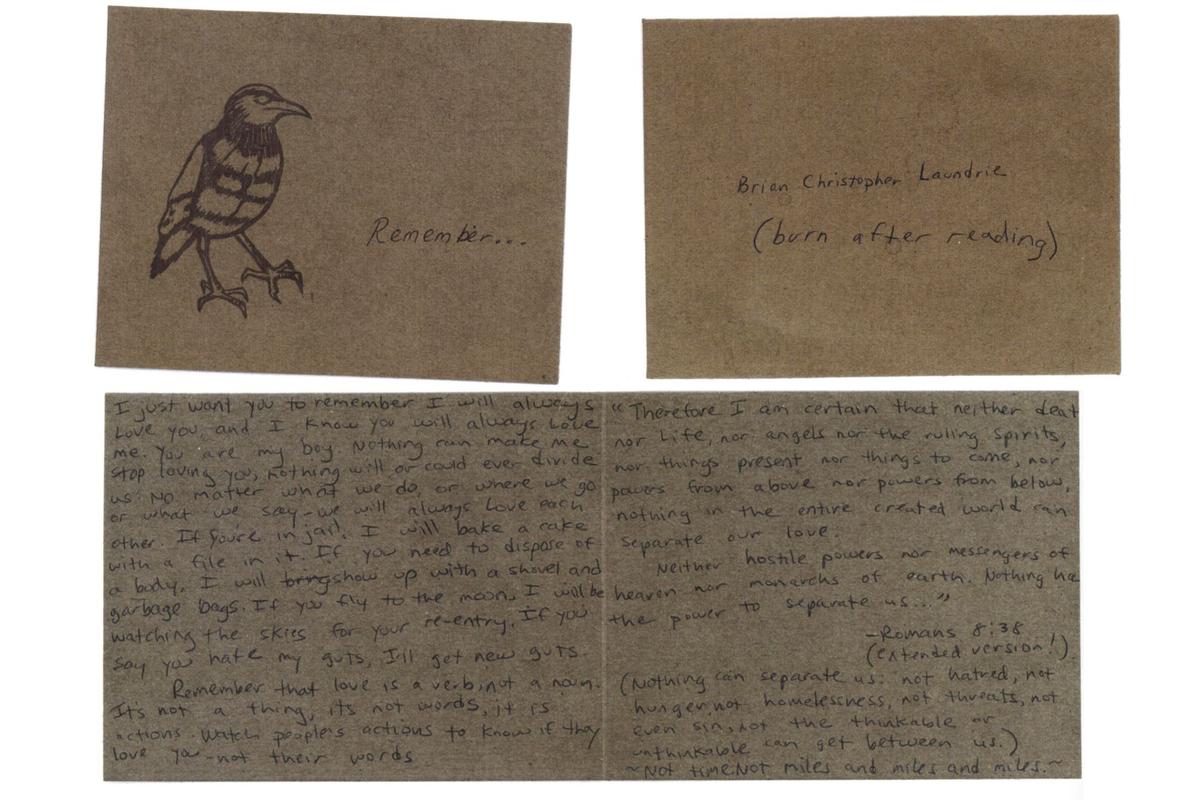 Remember...
Brian Christopher Laundrie
(burn after reading)
I just want you to remember I will always
Love you, and I know you will always Love
me. You are my boy. Nothing can make me
stop loving you, nothing will or could ever divide
us. No matter what we do, or where we go
or what we say - we will always Love each
other. If you're in jail, I will bake a cake
with a file in it. If you need to dispose of
a body, I will show up with a shovel and
garbage bags. If you fly to the moon, I will be
watching the skies for your re-entry. If you
say you hate my guts, I'll get new guts.
Remember that love is a verb, not a noun.
It's not a thing, its not words, it is
actions. Watch people's actions to know if they
love you - not their words
"Therefore I am certain that neither deat
nor Life, nor angels nor the ruling spirits,
nor things present nor things to come, nor
powers from above nor powers from below,
nothing in the entire created world can
separate our love.
Neither hostile powers nor messengers of
heaven nor monarchs of earth. Nothing ha
the power to separate us..."
-Romans 8:38
(extended version!)
(Nothing can separate us: not hatred, not
hunger, not homelessness, not threats, not
even sin, not the thinkable or
unthinkable can get between us.)
~Not time. Not miles and miles and miles.~